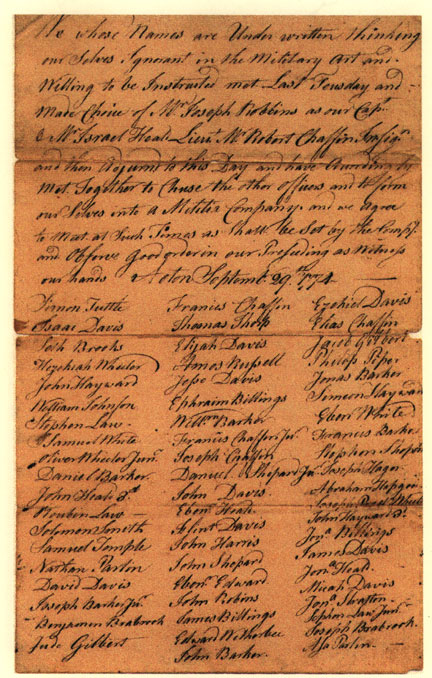 We whose Names are Under written thinking
our Selves Ignorant in the Military Art and
Willing to be Instructed met Last Tuesday and
Made Choice of Mr Joseph Robbins as our Capt
& Mr Israel Heald Lieut Mr Robert Chaffin Insign
and then Adjurnd to this Day and have Acordingly
Met Together to Chuse the other officers and to form
our Selves into a Militia Company and we Agree
to Meet at Such Times as shall be Set by the Company
and Observe Good order in our Preseding as Witness
our hands Acton Septembr 29th 1774
Simon Tuttle Francis Chaffin Ezekiel Davis
Isaac Davis Thomas Thorp Elias Chaffin
Seth Brooks Elijah Davis Jacob Gilbert
Hezekiah Wheeler Amos Russell Philip Piper
John Hayward Jesse Davis Jonas Barker
William Johnson Ephraim Billings Simeon Hayward
Stephen Law Willm Barker Eben White
Samuel White Francis Chaffin Jur Francis Barker
Oliver Wheeler Junr Joseph Chaffin Stephen Shepard
Daniel Barker Daniel Shepard Jur Joseph Hager
John Heald 3d John Davis Abraham Hapgood
Reuben Law Ebenr Heald Joseph Wheeler
Solomon Smith Flint Davis John Hayward
Samuel Temple John Harris Jona Billings
Nathan Parlin John Shepard James Davis
David Davis Ebenr Edward Jona Heald
Joseph Barker Jur John Robins Micah Davis
Benjamen Brabrook James Billings Jona Stratton
Jude Gilbert Edward Wetherbee Stephen Law Junr
John Barker Joseph Brabrook
Asa Parlin